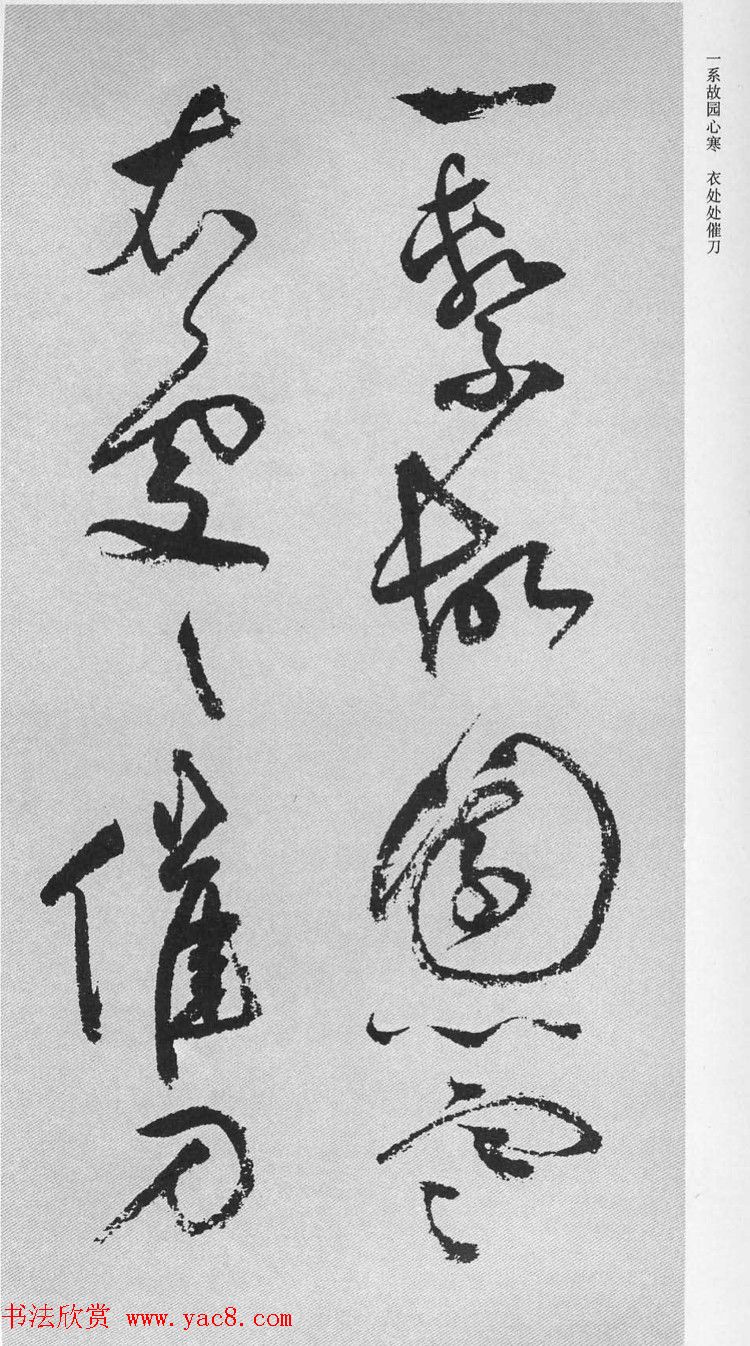 一系故园心寒　衣处处催刀
一繫故園心寒
衣處〻催刀
书法欣赏 www.yac8.com